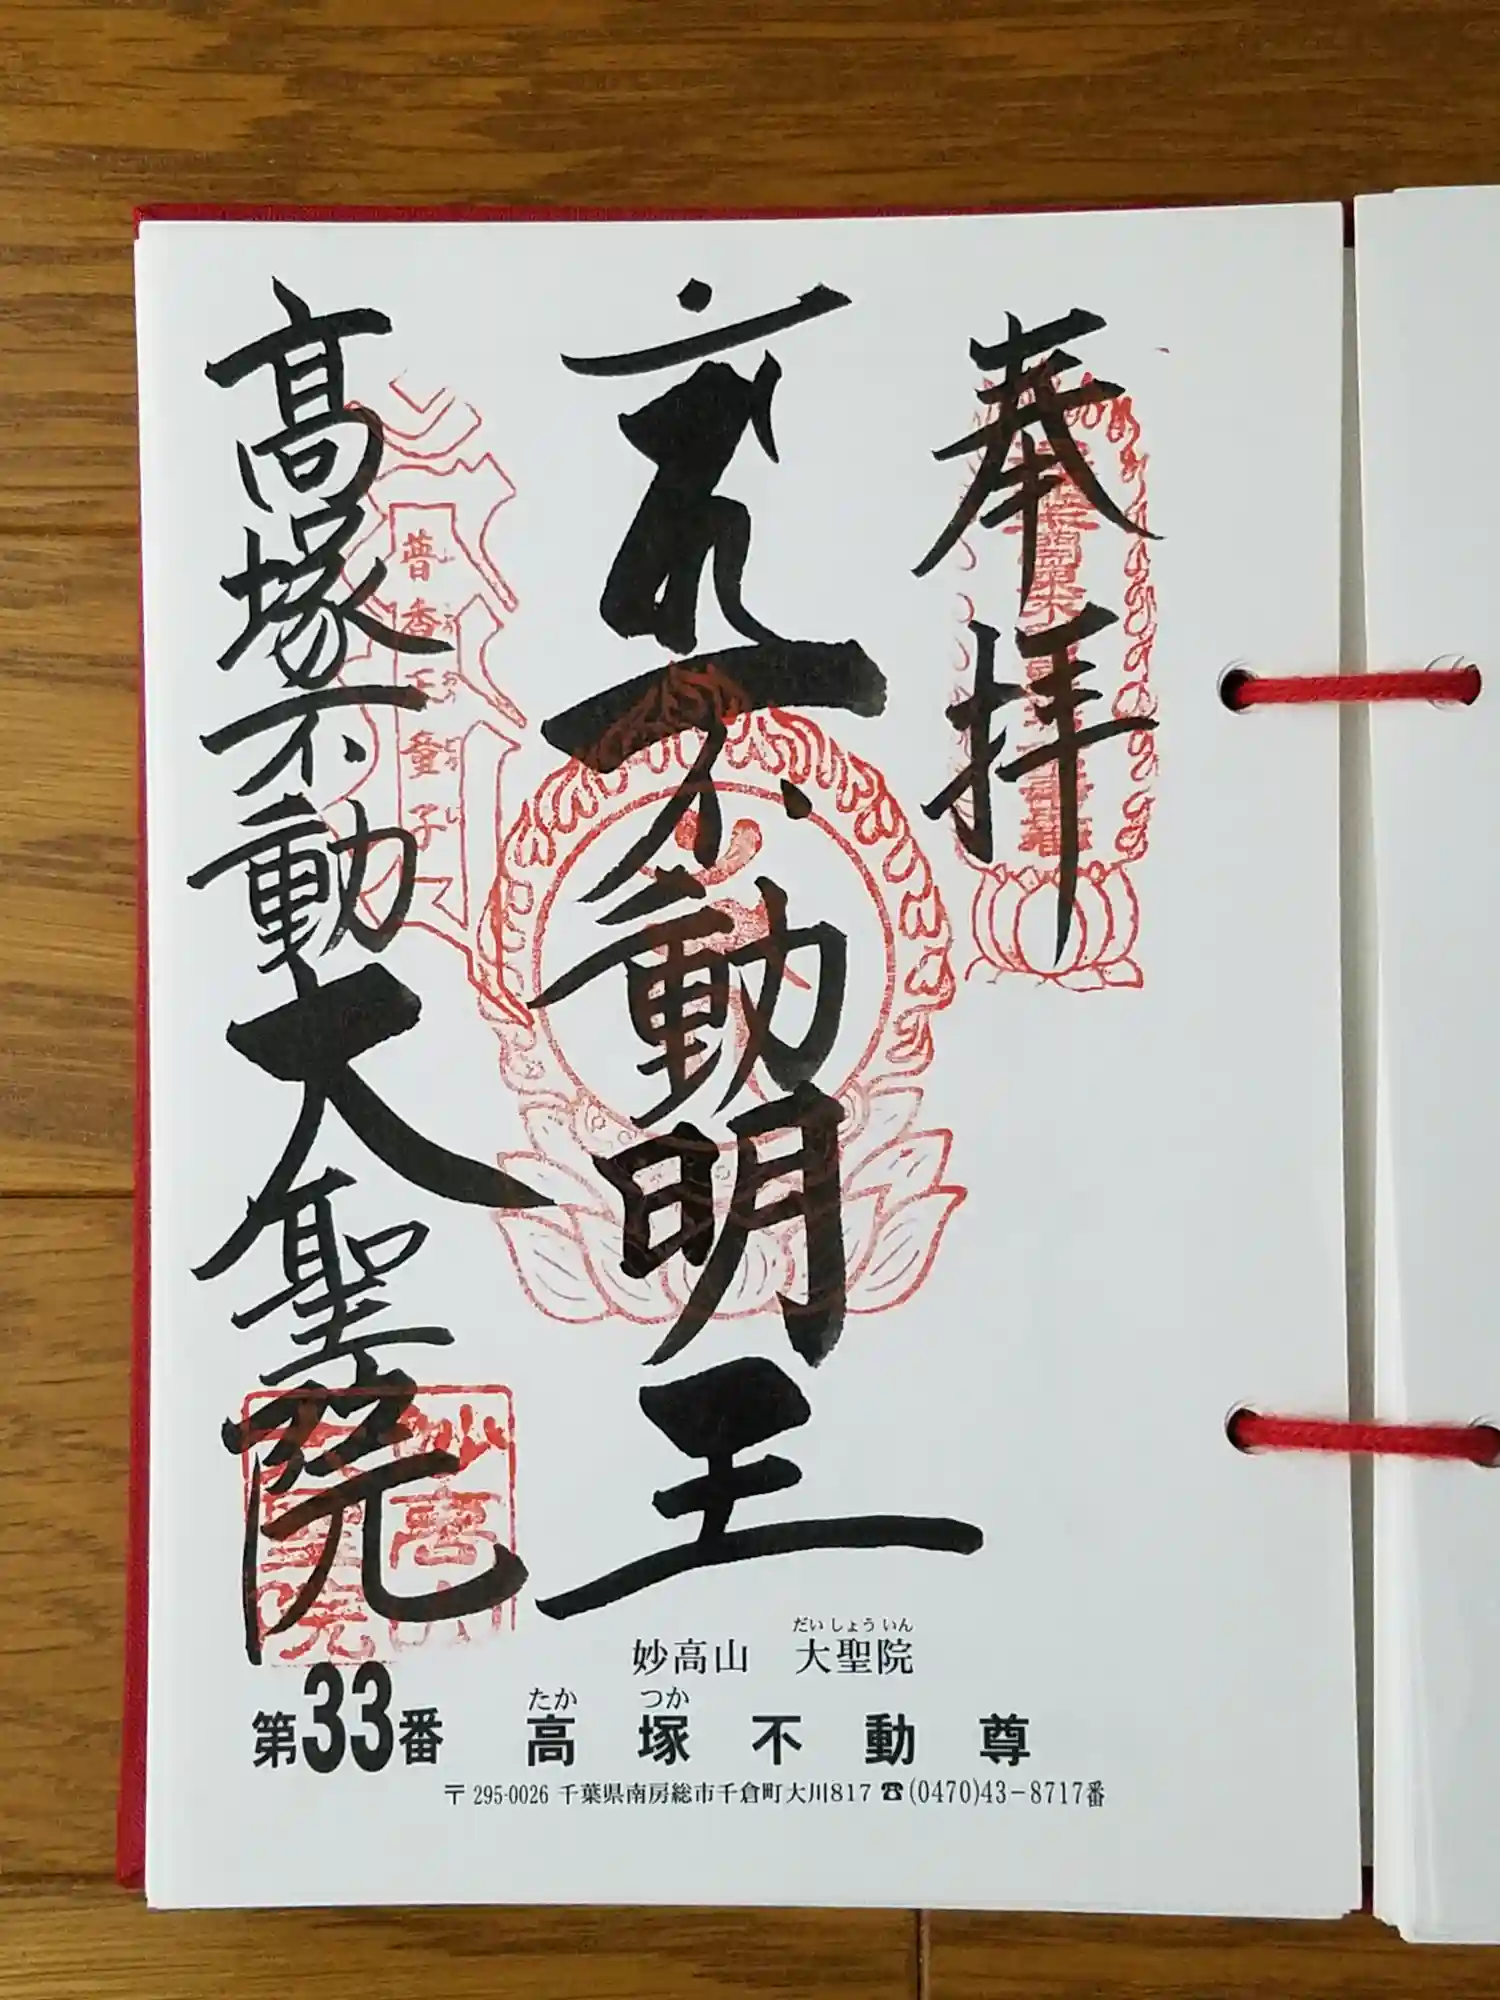 奉拝
不動明王
高塚不動大聖院
普香王童子
だいしょういん
妙高山 大聖院
たか つか
第33番 高塚不動尊
〒295-0026 千葉県南房総市千倉町大川817 ☎(0470)43−8717番